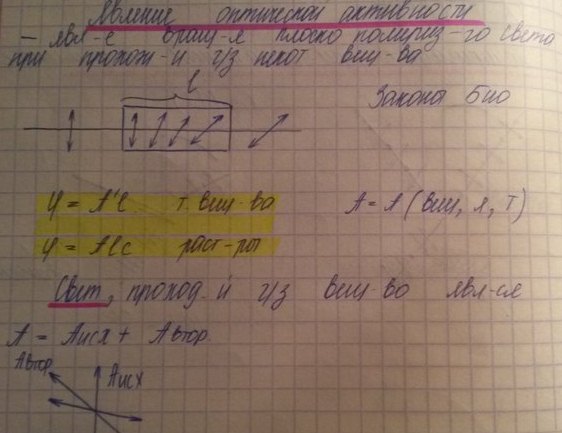 Явление оптической активности
- явл-е вращ-я плоско поляриз-го света
при прохож-и ч/з некот вещ-ва
l
Закона Био
φ = A'l т. вещ-ва
A = A (вещ, λ, T)
φ = Alc раст-ры
Свет, проход-й ч/з вещ-во явл-ся
A = Aисх + Aвтор.
Aвтор.
Aисх